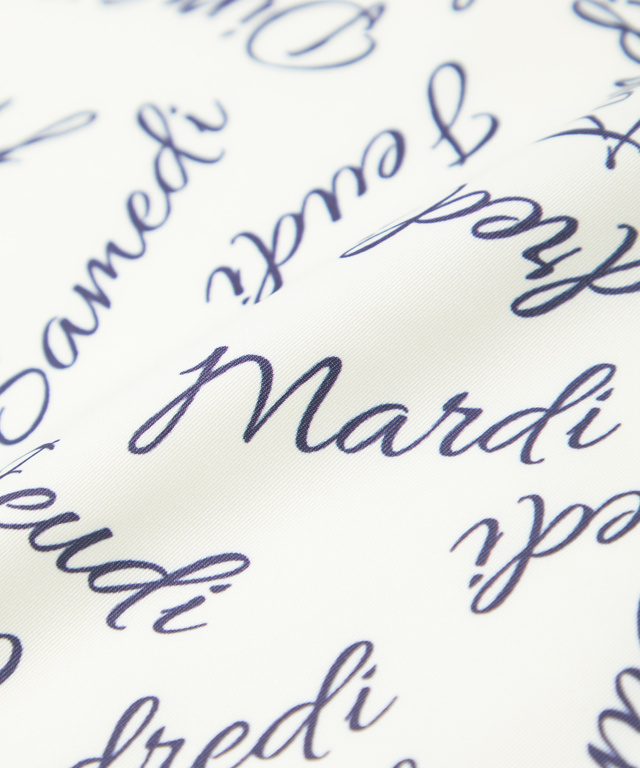 Dim
Samedi
Jeudi
dred
Mardi
Jeudi
edi
dredi